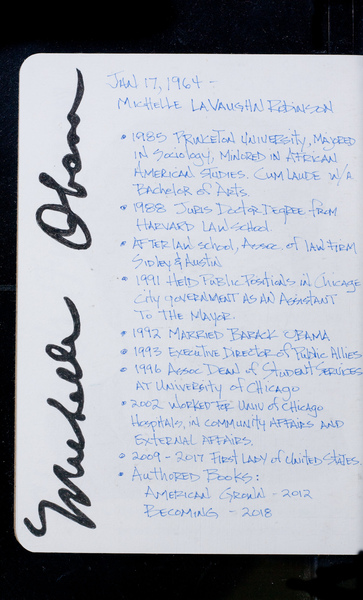 Michelle Obama
JAN 17, 1964 -
MICHELLE LAVAUGHN ROBINSON
• 1985 PRINCETON UNIVERSITY, MAJORED
IN SOCIOLOGY, MINORED IN AFRICAN
AMERICAN STUDIES. CUM LAUDE W/A
BACHELOR OF ARTS.
• 1988 JURIS DOCTOR DEGREE FROM
HARVARD LAW SCHOOL.
• AFTER LAW SCHOOL, ASSOC. OF LAW FIRM
SIDLEY & AUSTIN
• 1991 HELD PUBLIC POSITIONS IN CHICAGO
CITY GOVERNMENT AS AN ASSISTANT
TO THE MAYOR.
• 1992 MARRIED BARACK OBAMA
• 1993 EXECUTIVE DIRECTOR OF PUBLIC ALLIES
• 1996 ASSOC DEAN OF STUDENT SERVICES
AT UNIVERSITY OF CHICAGO
• 2002 WORKED FOR UNIV OF CHICAGO
HOSPITALS, IN COMMUNITY AFFAIRS AND
EXTERNAL AFFAIRS.
• 2009 - 2017 FIRST LADY OF UNITED STATES.
• AUTHORED BOOKS:
AMERICAN GROWN - 2012
BECOMING - 2018